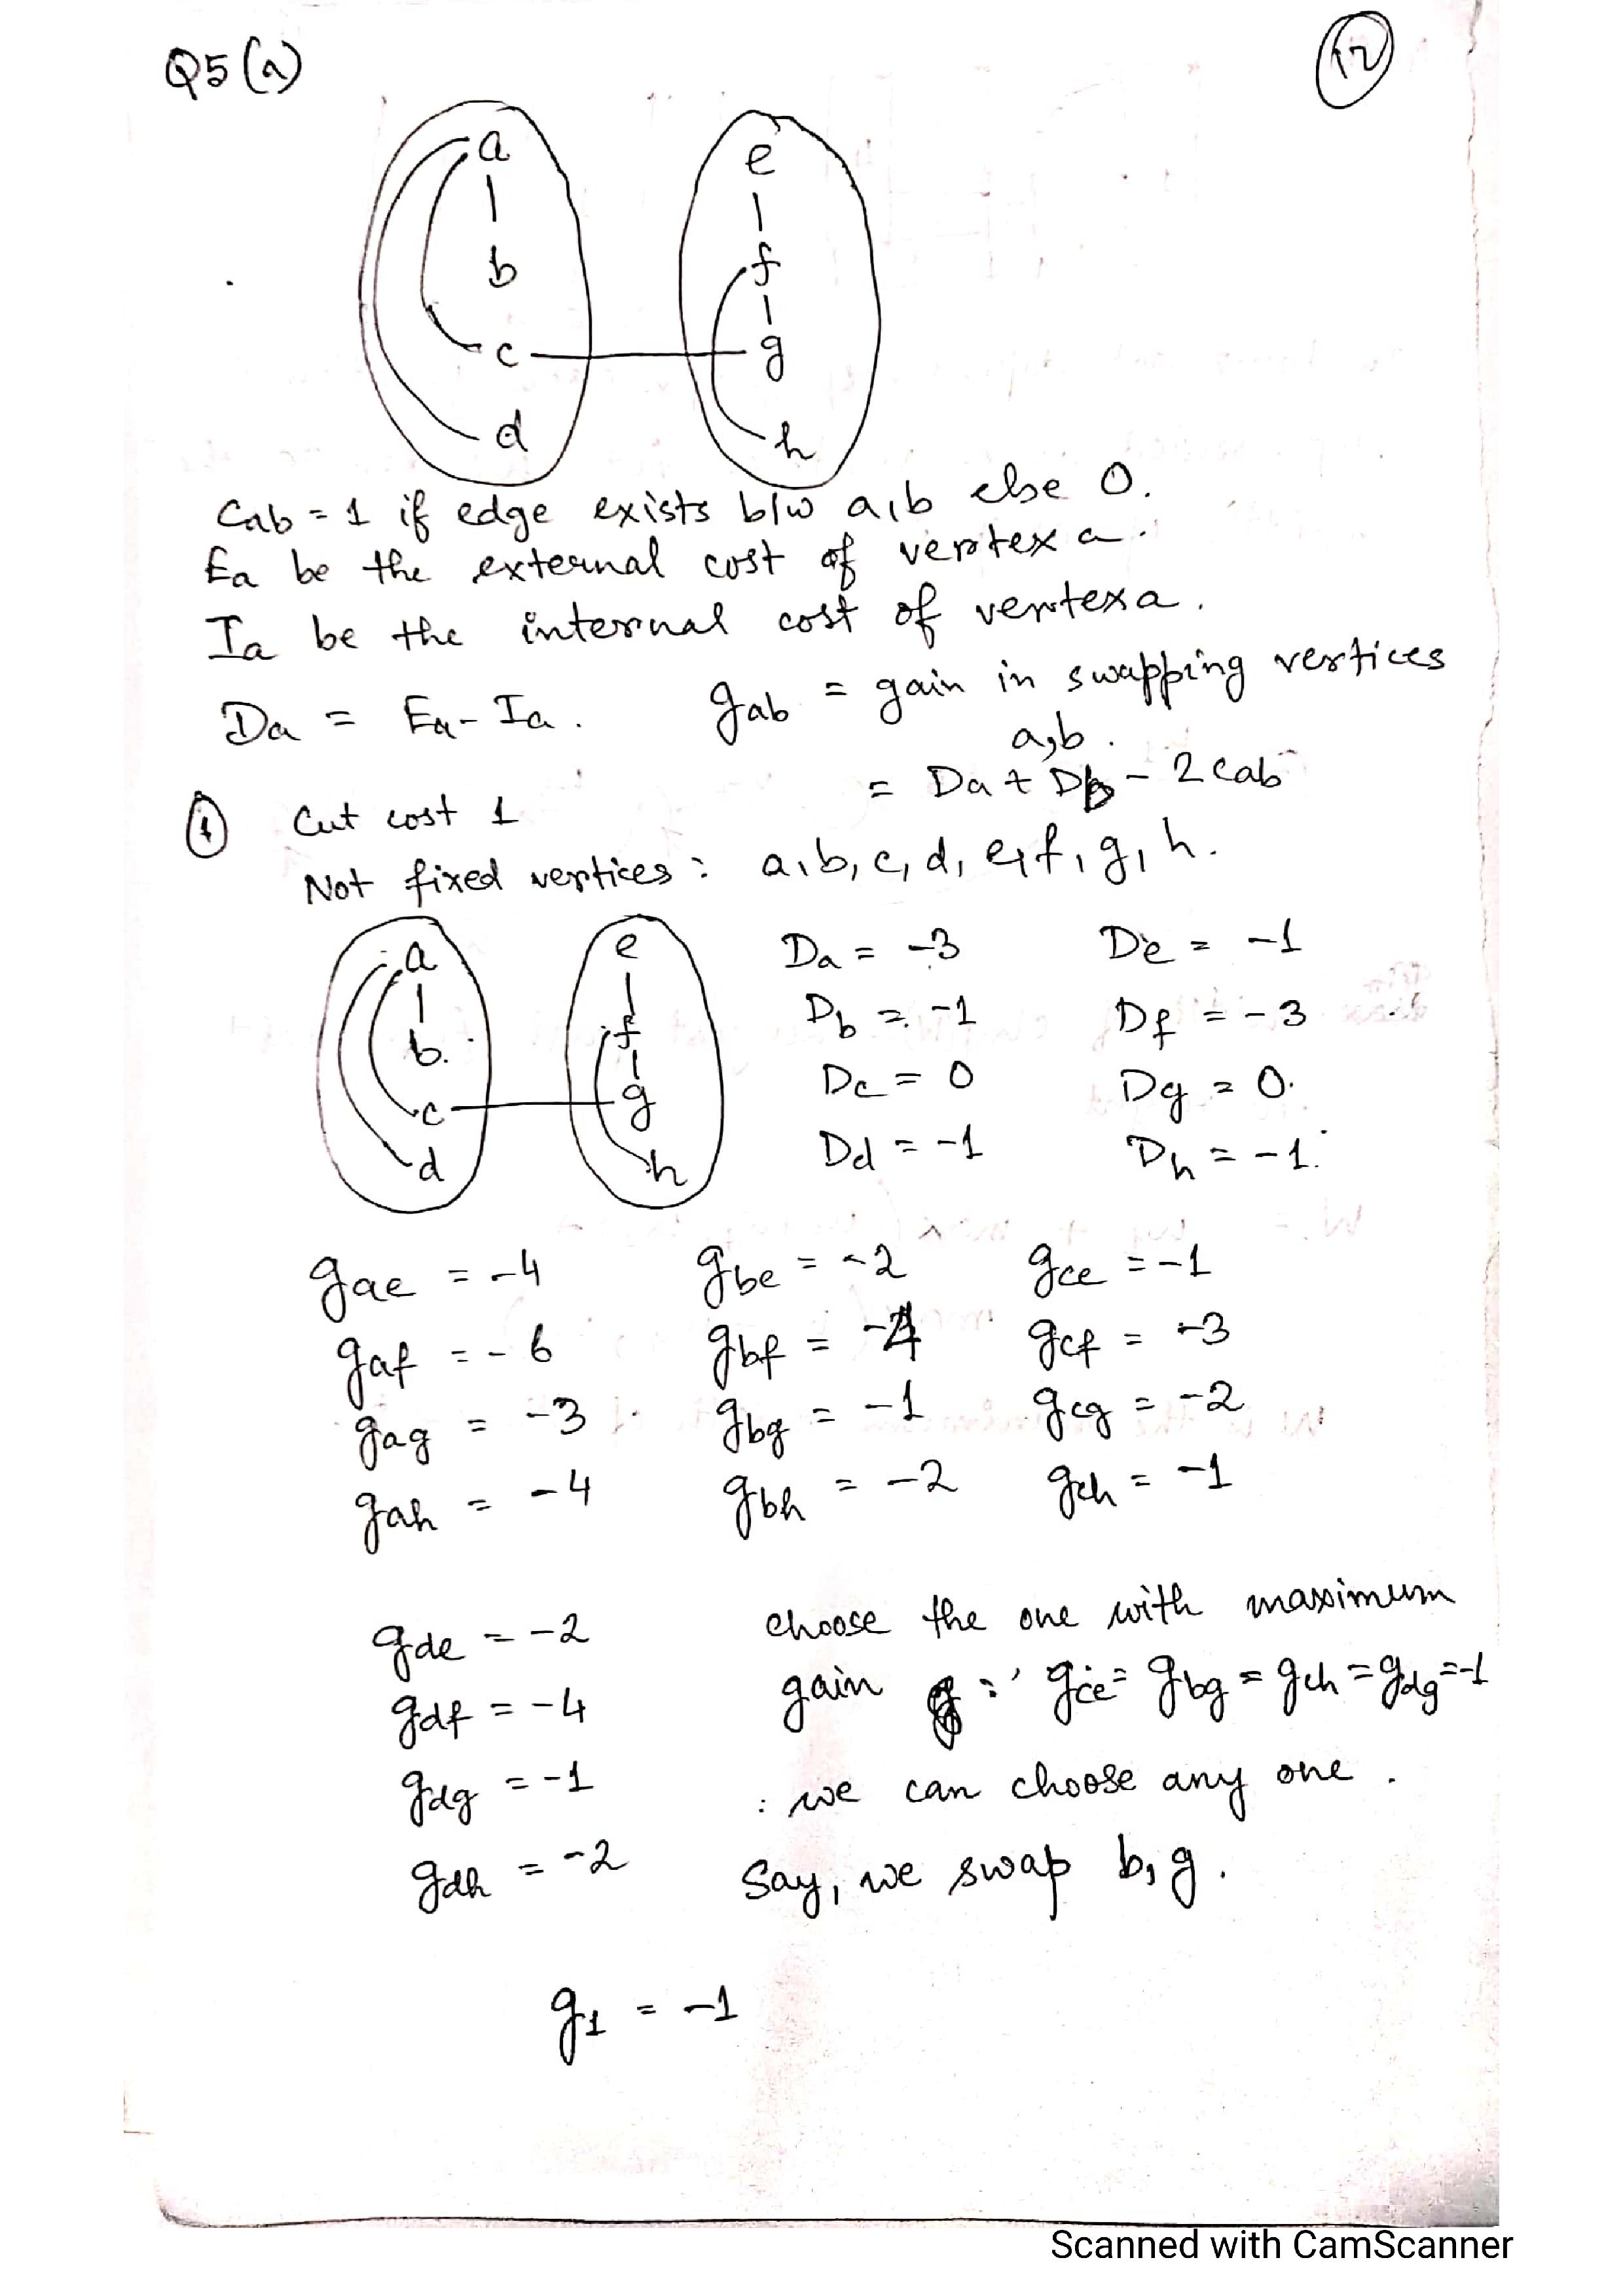 Q5(a)
12
a
e
b
f
c
g
d
h
Cab = 1 if edge exists b/w a,b else 0.
Ea be the external cost of vertex a.
Ia be the internal cost of vertex a.
Da = Ea - Ia. gab = gain in swapping vertices
a,b.
= Da + Db - 2cab
① Cut cost 1
Not fixed vertices: a, b, c, d, e, f, g, h.
a e Da = -3 De = -1
b. f Db = -1 Df = -3
c g Dc = 0 Dg = 0.
d h Dd = -1 Dh = -1.
gae = -4 gbe = -2 gce = -1
gaf = -6 gbf = -4 gcf = -3
gag = -3 gbg = -1 gcg = -2
gah = -4 gbh = -2 gch = -1
gde = -2 choose the one with maximum
gdf = -4 gain : gce = gbg = gch = gdg = -1
gdg = -1 : we can choose any one.
gdh = -2 Say, we swap b, g.
g1 = -1
Scanned with CamScanner